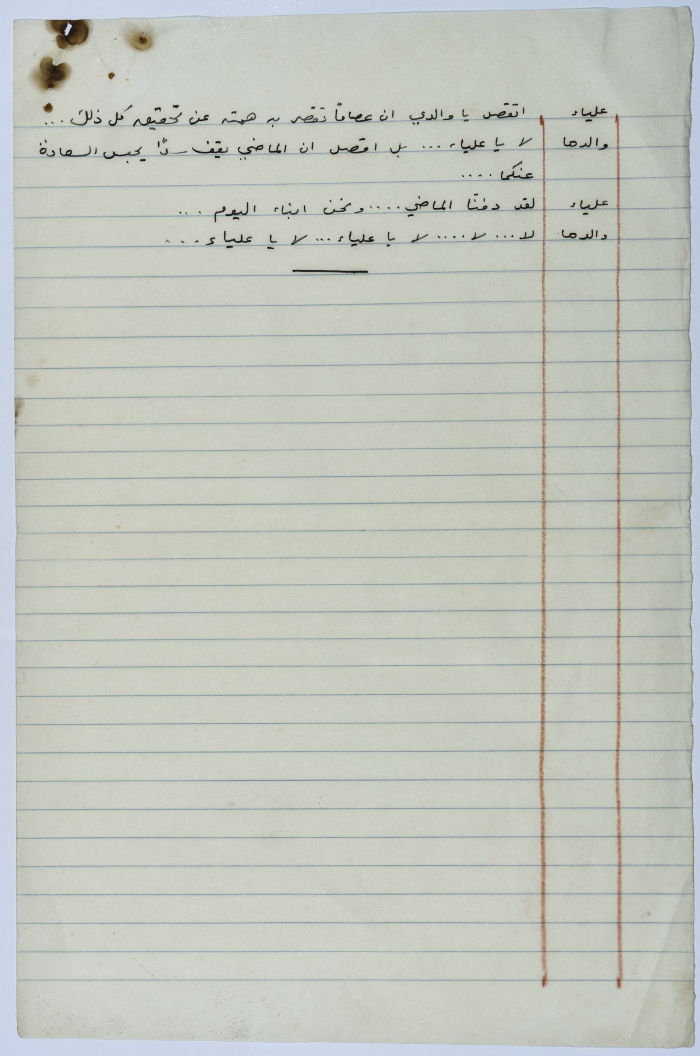 علياء اتقصد يا والدي ان عصاماً تقصر به همته عن تحقيق كل ذلك ...
والدها لا يا علياء ... بل اقصد ان الماضي يقف سدًا يحبس السعادة
عنكما ....
علياء لقد دفنّا الماضي .... ونحن ابناء اليوم ...
والدها لا ... لا .... لا يا علياء ... لا يا علياء ...